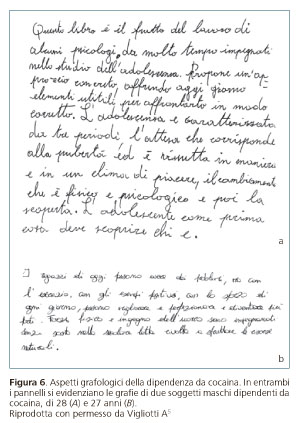 Questo libro è il frutto del lavoro di
alcuni psicologi, da molto tempo impegnati
nello studio dell'adolescenza. Propone un'ap-
proccio concreto, offrendo aggi giorno
elementi utili per affrontarlo in modo
corretto. L'adolescenza è caratterizzata
da tre periodi l'attesa che corrisponde
alla pubertà ed è vissuta in maniera
e in un clima di piacere, il cambiamento
che è fisico e psicologico e poi la
scoperta. L'adolescente come prima
cosa deve scoprire chi è.
a
I ragazzi di oggi possono essere da
l'esercizio, con gli esempi positivi, con lo sforzo di
ogni giorno, possono migliorare e perfezionarsi e diventare più
forti. Forza fisica e ingegno dell'uomo sono impegnati
nella lotta a sfruttare le risorse
naturali.
b
Figura 6. Aspetti grafologici della dipendenza da cocaina. In entrambi
i pannelli si evidenziano le grafie di due soggetti maschi dipendenti da
cocaina, di 28 (A) e 27 anni (B).
Riprodotta con permesso da Vigliotti A⁵